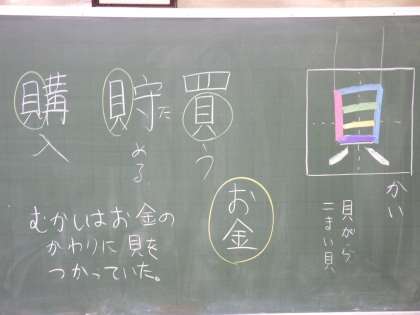 貝
かい
貝がら
二まい貝
買う
貯める
た
購入
お金
むかしはお金の
かわりに貝を
つかっていた。